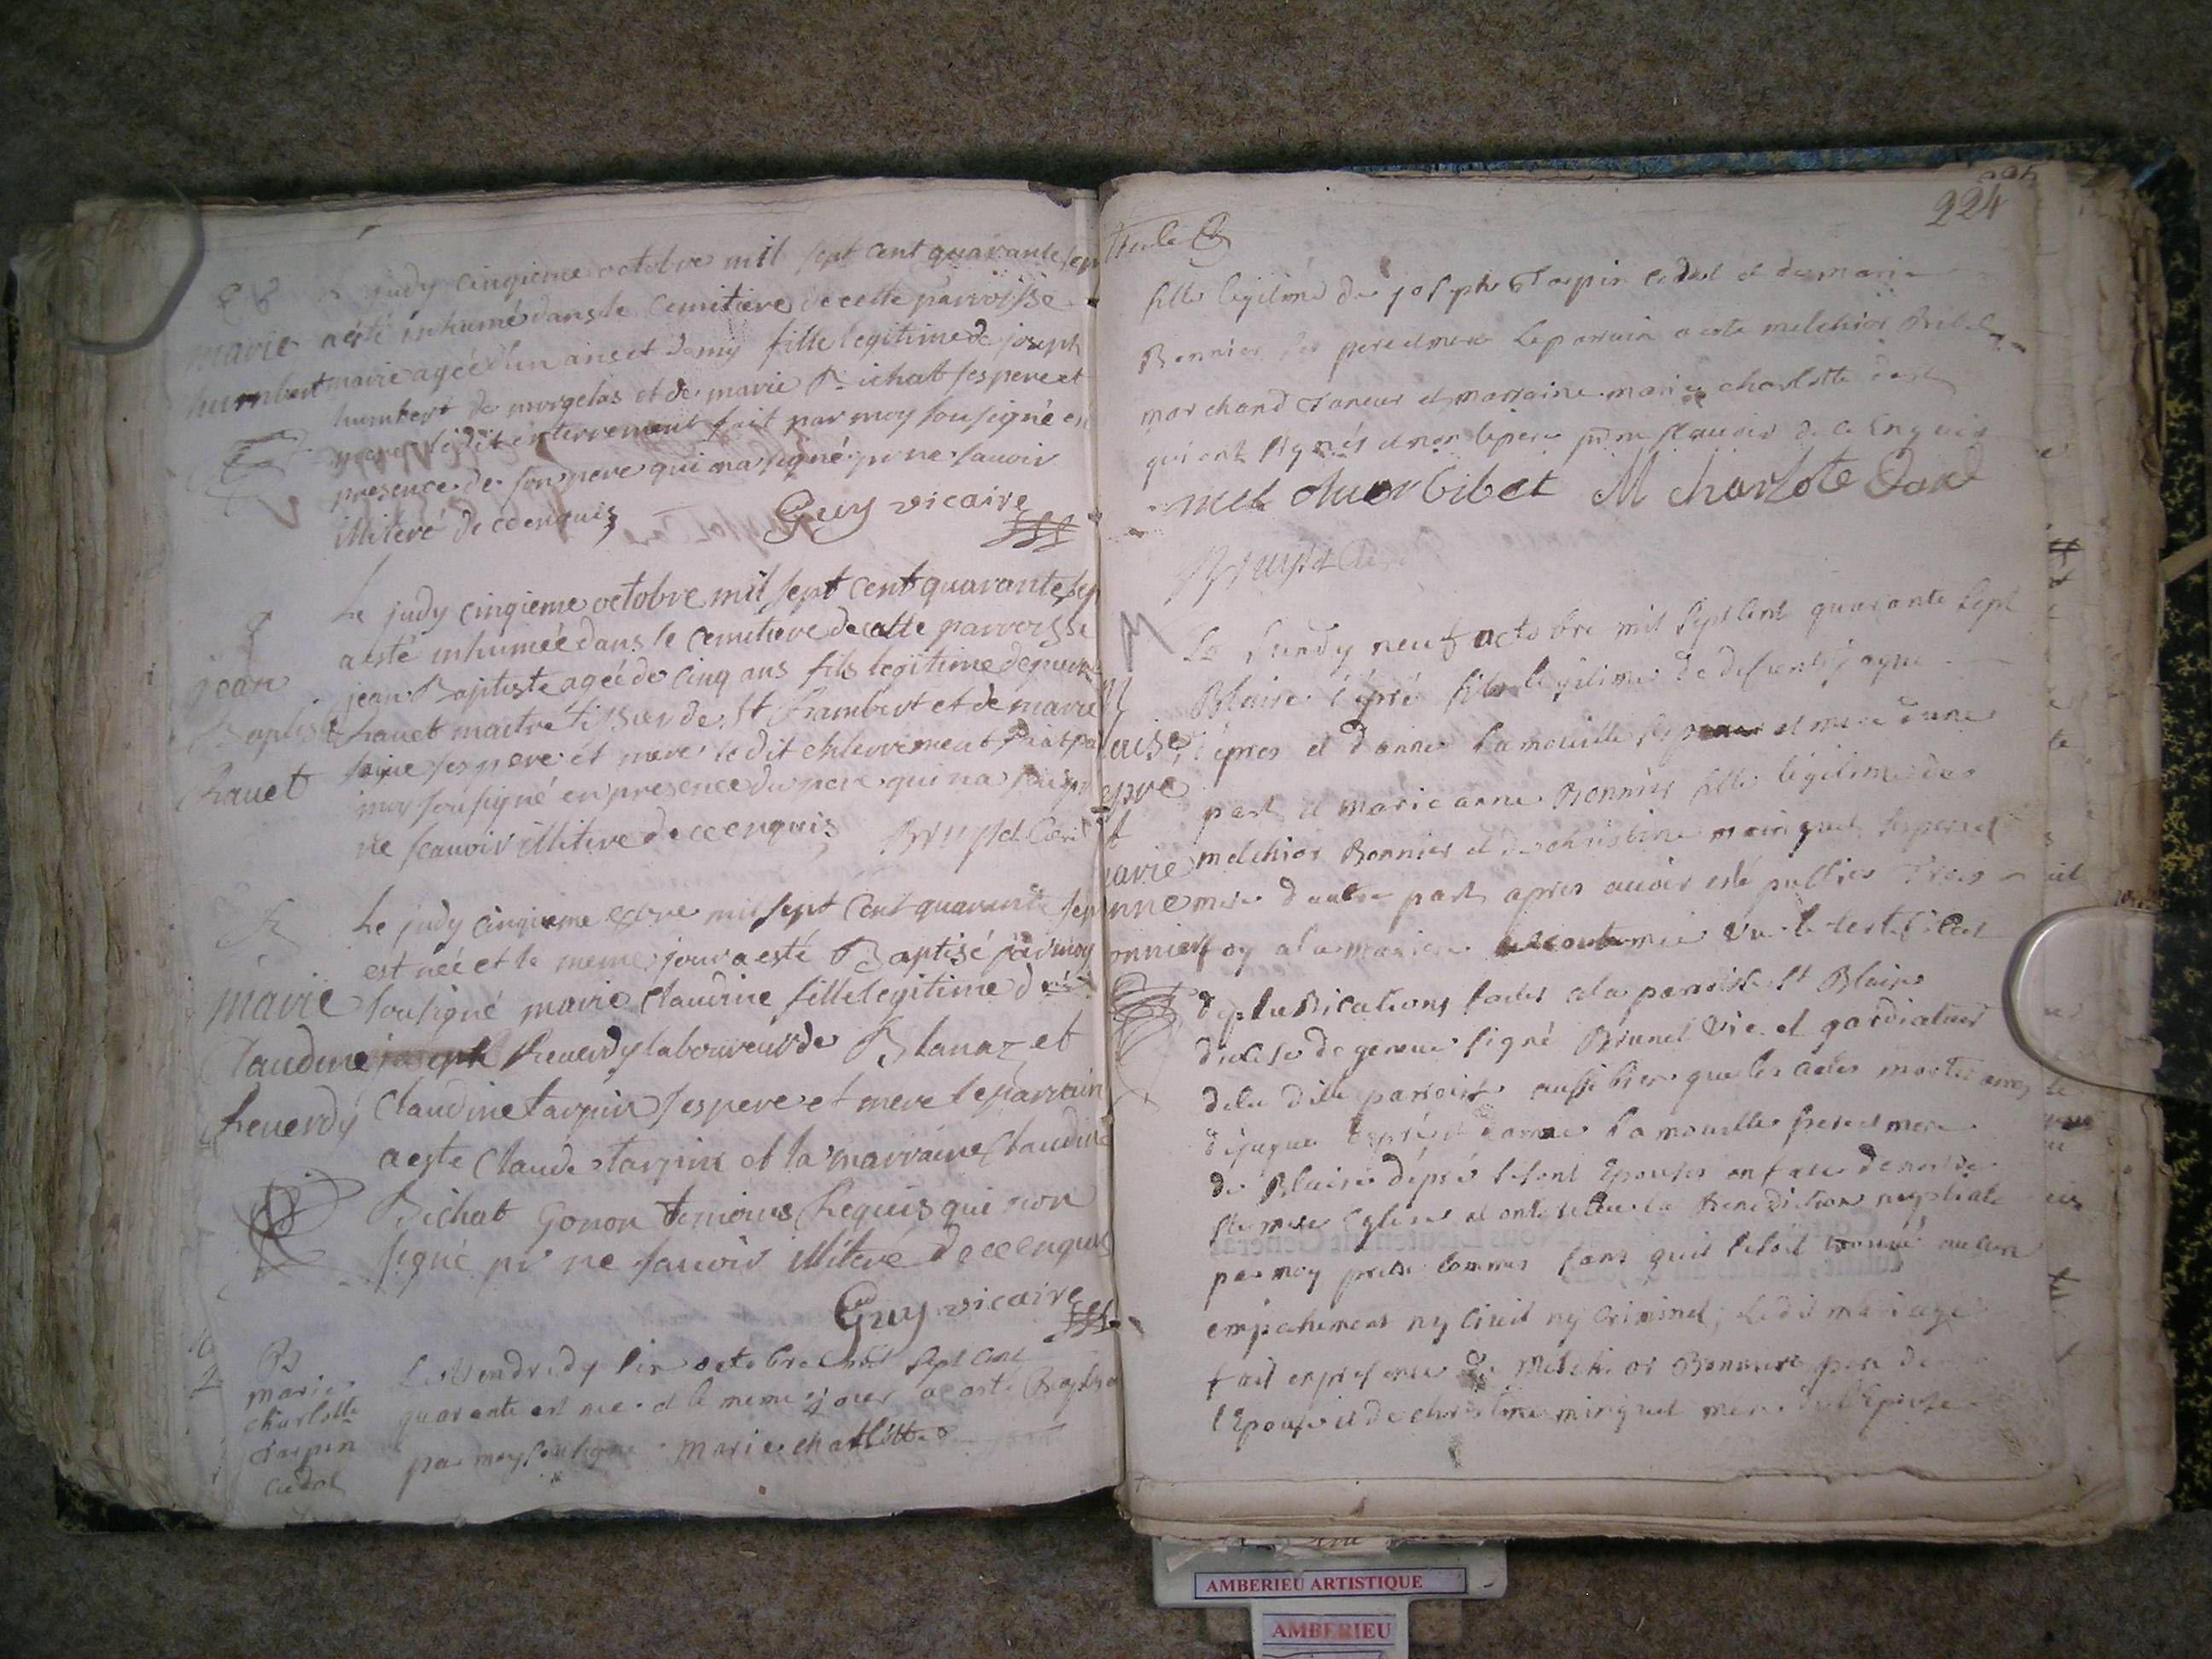 judy cinqieme octobre mil sept cent quarante sep
marie a esté inhumé dans le cemitiere de cette parroisse
humbert marie agée d'un an et demy fille legitime de joseph
humbert de morgelas et de marie Bichat ses pere et
mere ledit enterrement fait par moy sousigné en
presence de son pere qui na signé pr ne sauoir
illiteré de ce enquis
Guy vicaire
Le judy cinqieme octobre mil sept cent quarante sep
a esté inhumée dans le cemitiere de cette parroisse
jean jean Baptiste agée de cinq ans fils legitime de
Baptiste Rauet maitre tissier de St Rambert et de marie
Rauet ses pere et mere le dit enterrement fait par
moy sousigné en presence du pere qui na signé pr
ne scauoir illiteré de ce enquis
Le judy cinqieme octobre mil sept cent quarante sep
est née et le meme jour a esté Baptisé par moy
marie sousigné marie Claudine fille legitime de
Claudine joseph Reuerdy laboureur de Blanaz et
Reuerdy Claudine tarpin ses pere et mere le parrain
a este Claude tarpin et la marraine Claudine
Bichat Gonon temoins Requis qui non
signé pr ne sauoir illiteré de ce enquis
Guy vicaire
B
marie Le Vendredy six octobre mil sept cent
charlotte quarante est nee et le meme jour a esté Baptisé
Tarpin par moy sousigné marie charlotte
Cadol
224
fille legitime de joseph Tarpin cadol et de marie
Bonnier ses pere et mere le parrain a esté melchior Bibet
marchand Taneur et marraine marie charlotte
qui ont signés et non le pere pr ne scauoir de ce Enquis
melchior bibet M charlote
M Le Lundy neuf octobre mil sept cent quarante sept
Blaise dépré fils legitime de defunts jaque
dépres et d'anne Lamouille ses pere et mere dune
part et marie anne Bonnier fille legitime de
melchior Bonnier et de christine minguet ses pere et
mere d'autre part apres auoir esté publiés Trois
foy a la maniere accoutumée Vu le certificat
de publications faites a la paroisse St Blaise
diocese de geneue signé Brunet Vic et
de la dite parroisse aussi bien que les actes mortuaires
de jaque dépré et d'anne Lamouille pere et mere
de Blaise dépré se sont Epousés en face de notre
Ste mere Eglise et ont receu la Benediction nuptiale
par moy pretre commis sans quil se soit trouué aucun
empechement ny Ciuil ny Criminel, Ledit mariage
fait en presence de Melchior Bonnier pere de
l'Epouse et de christine minguet mere de l'Epouse
AMBERIEU ARTISTIQUE
AMBERIEU